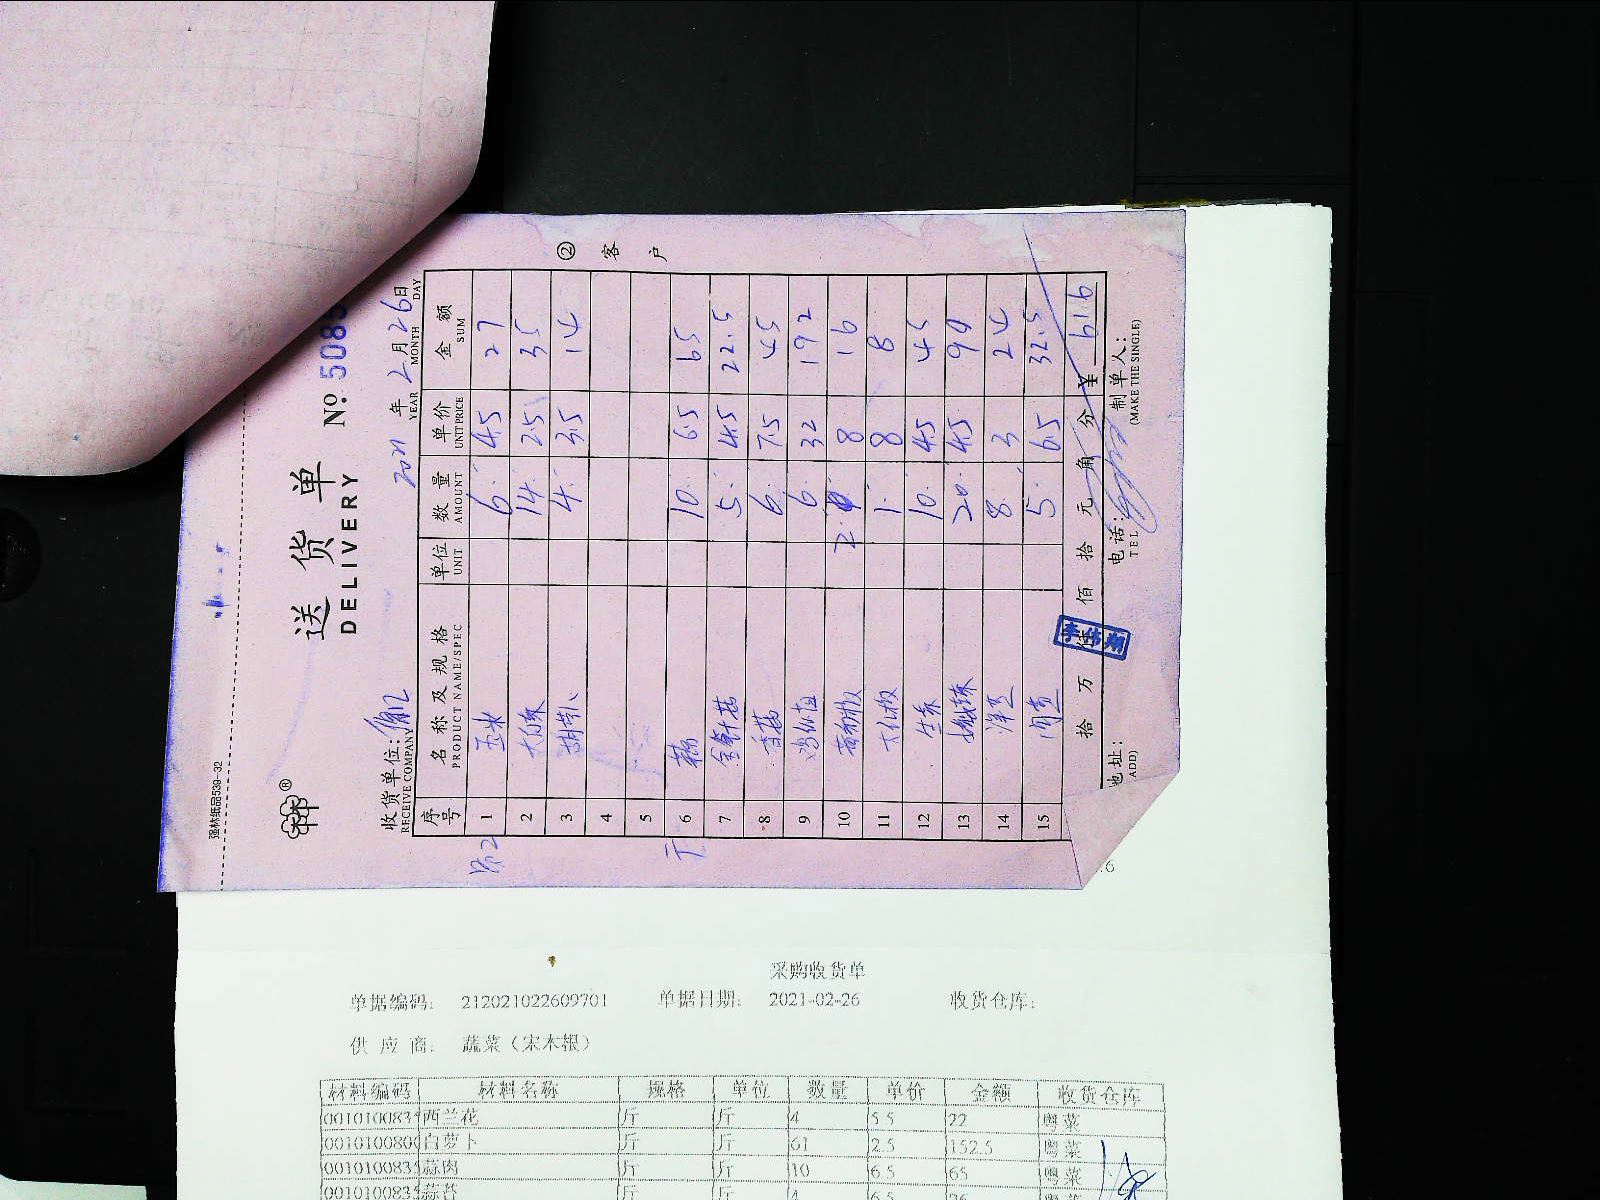 强林纸品539-32
送货单
DELIVERY
No. 5085
2021年2月26日
YEAR MONTH DAY
收货单位:
RECEIVE COMPANY
② 客户
序号 名称及规格 单位 数量 单价 金额
PRODUCT NAME/SPEC UNIT AMOUNT UNIT PRICE SUM
1 玉米 6. 4.5 27
2 14. 2.5 35
3 4. 3.5 14
4
5
6 10. 6.5 65
7 金针菇 5. 4.5 22.5
8 香菇 6. 7.5 45
9 6. 32 192
10 2. 8 16
11 1. 8 8
12 生菜 10. 4.5 45
13 20. 4.5 99
14 洋葱 8. 3 24
15 5. 6.5 32.5
拾 万 仟 佰 拾 元 角 分 ¥ 616
地址: 电话: 制单人:
ADD) TEL (MAKE THE SINGLE)
采购收货单
单据编码: 212021022609701 单据日期: 2021-02-26 收货仓库:
供应商: 蔬菜(宋木根)
材料编码 材料名称 规格 单位 数量 单价 金额 收货仓库
001010083 西兰花 斤 斤 4 5.5 22 粤菜
001010080 白萝卜 斤 斤 61 2.5 152.5 粤菜
001010083 蒜肉 斤 斤 10 6.5 65 粤菜
001010083 蒜苔 斤 斤 4 6.5 26 粤菜